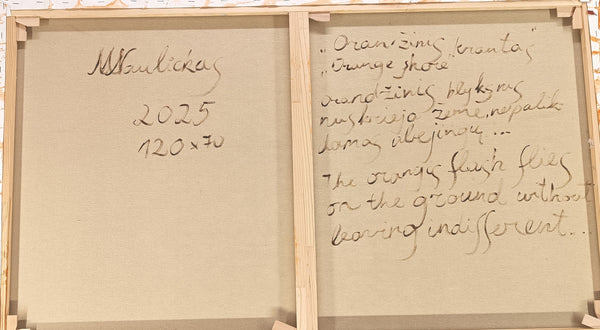 MNaulickas
2025
120x70
„Oranžinis krantas"
„Orange shore"
orandžinis blyksnis
nuskrieja žeme, nepalik-
damas abejingų...
The orangs flash flies
on the ground without
leaving indifferent...